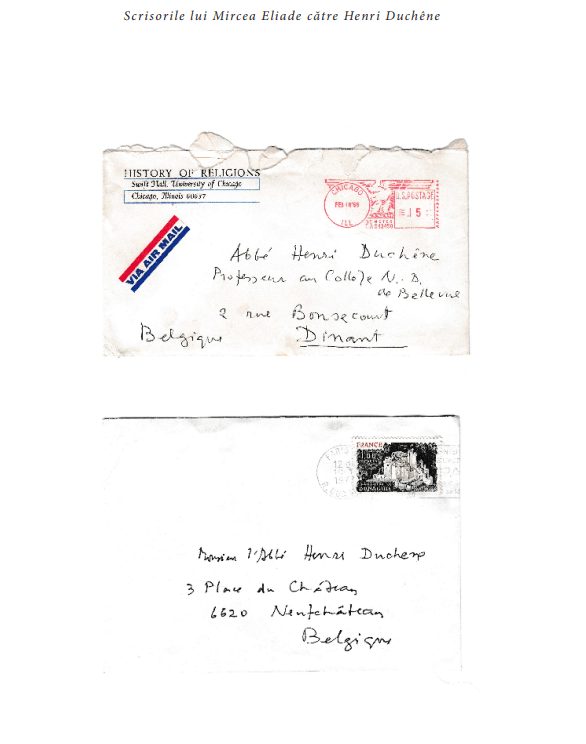 Scrisorile lui Mircea Eliade către Henri Duchêne
HISTORY OF RELIGIONS
Swift Hall, University of Chicago
Chicago, Illinois 60637
CHICAGO
FEB
ILL.
U.S. POSTAGE
15
VIA AIR MAIL
Abbé Henri Duchêne
Professeur au Collège N. D.
de Bellevue
2 rue Bonsecourt
Belgique Dinant
FRANCE
1,00
Monsieur l'Abbé Henri Duchene
3 Place du Château
6620 Neufchâteau
Belgique